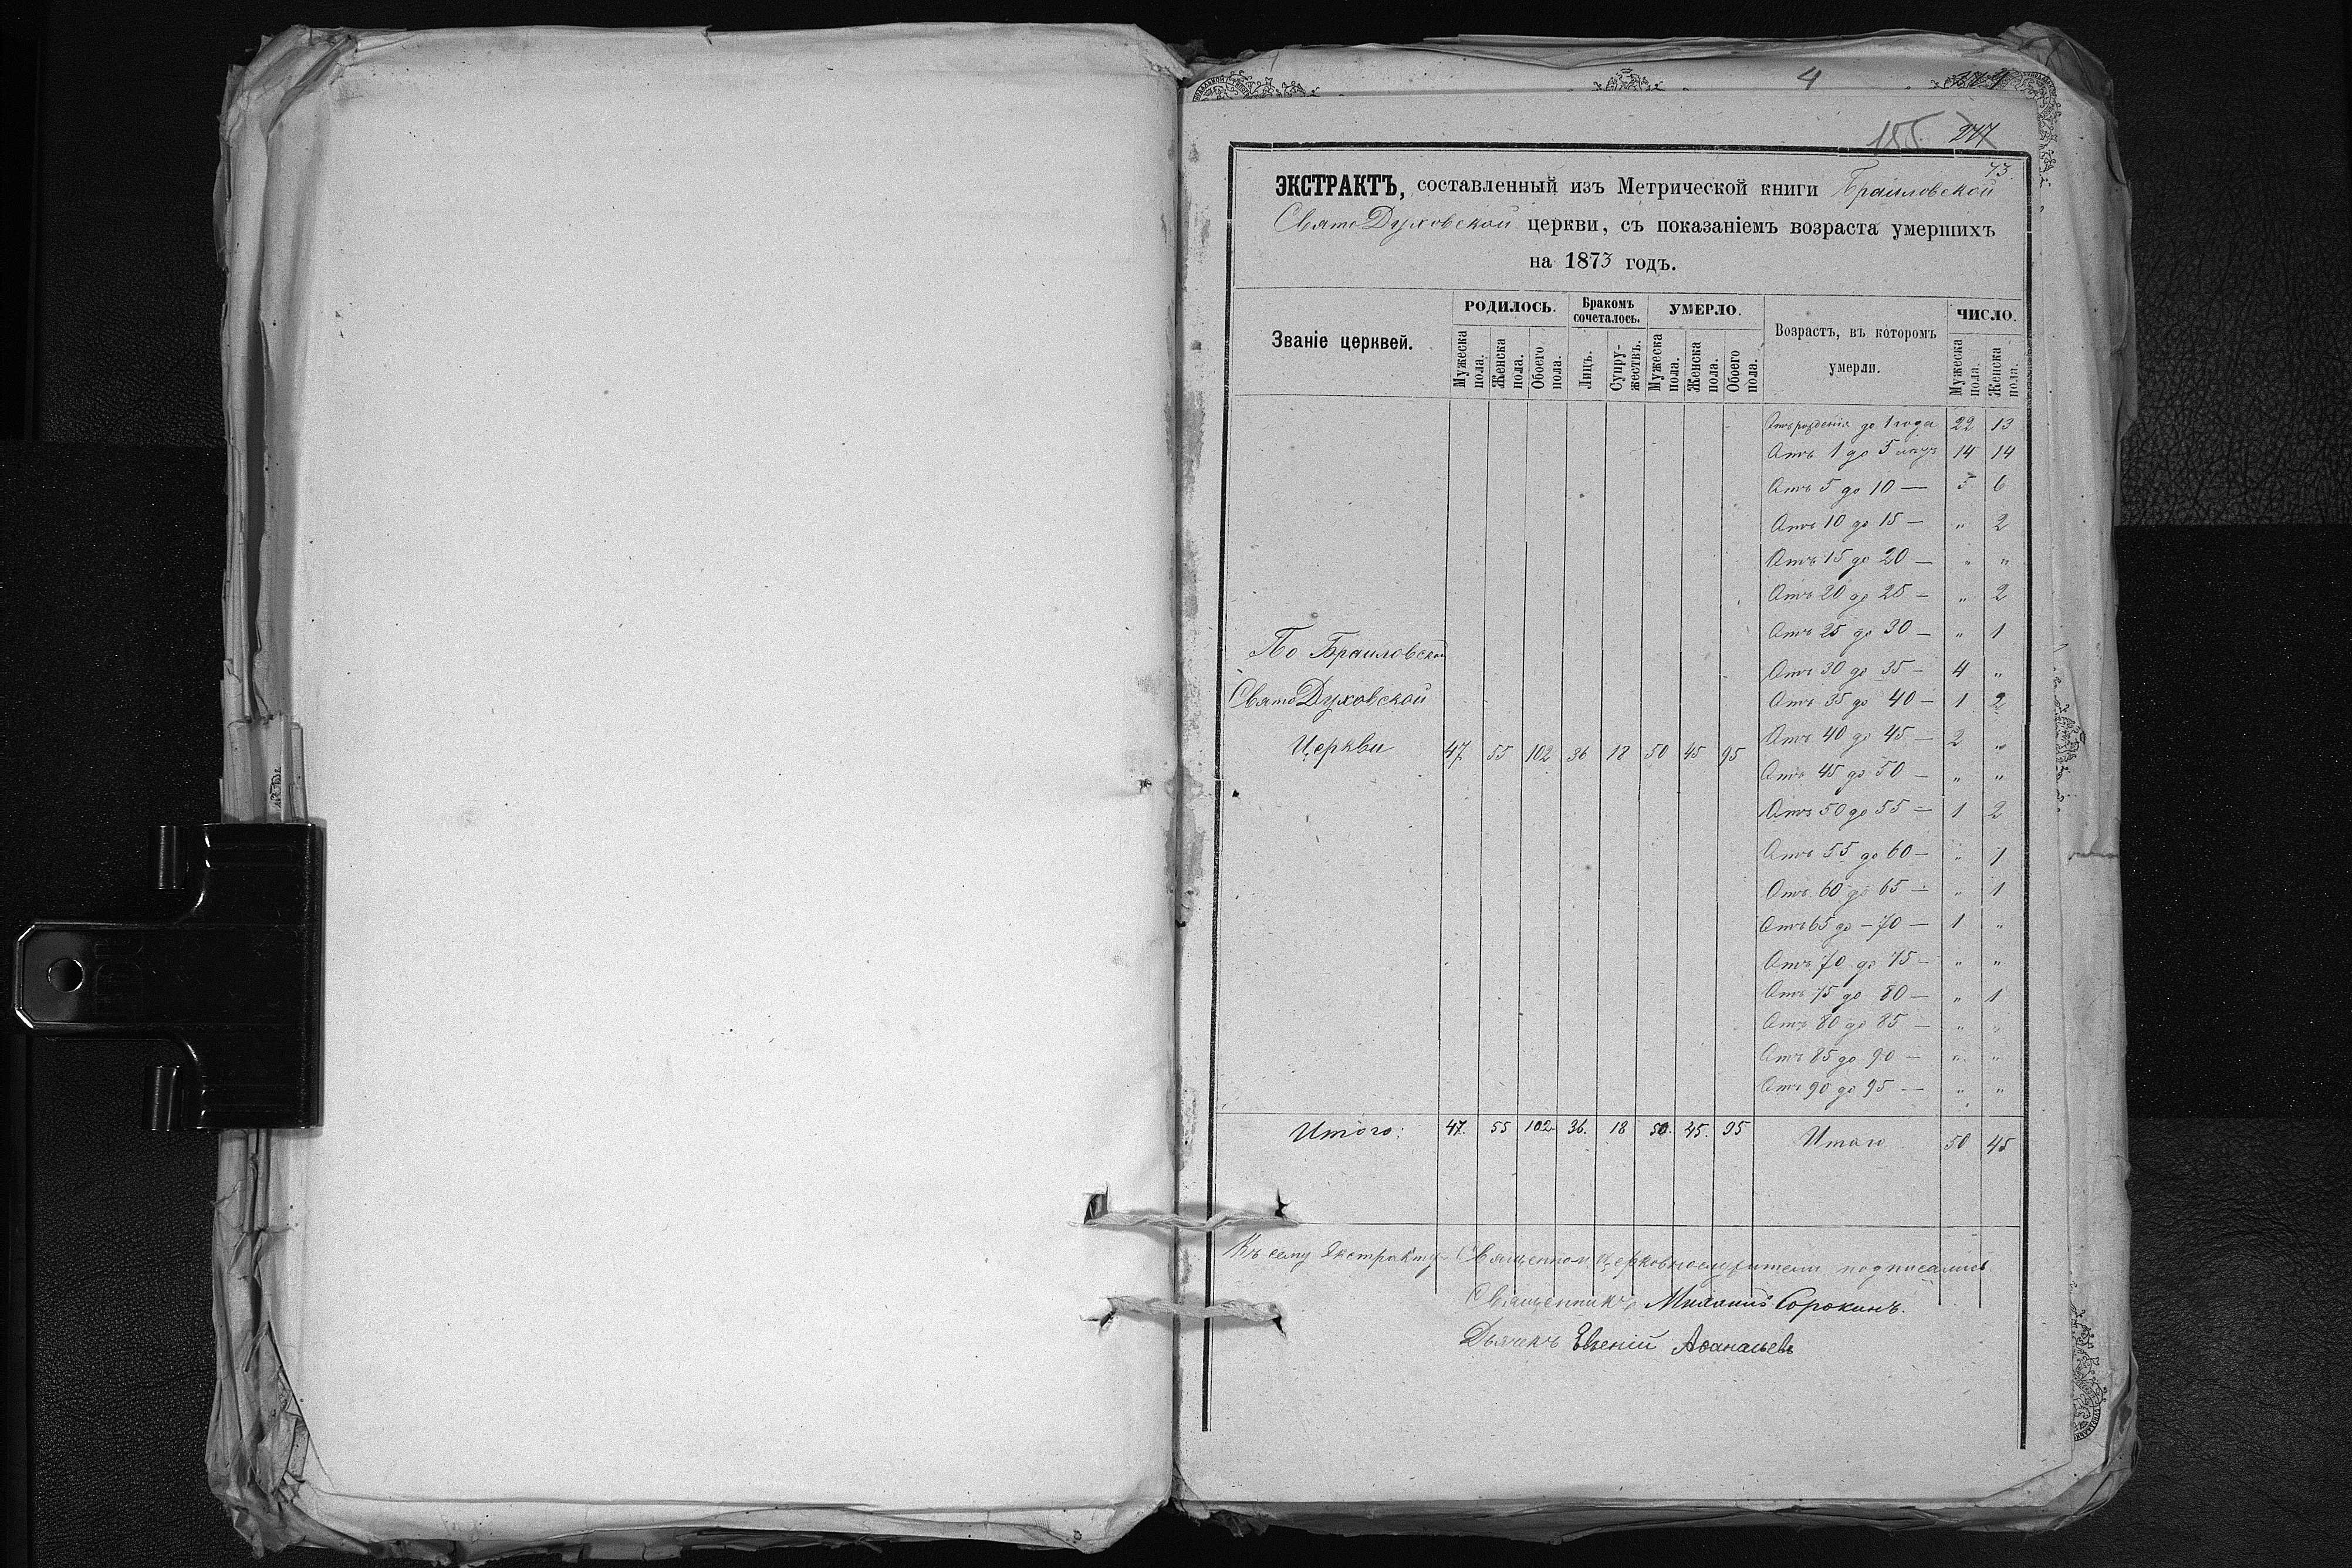 4
155. 247
73.
ЭКСТРАКТЪ, составленный изъ Метрической книги Браиловской
Свято Духовской церкви, съ показаніемъ возраста умершихъ
на 1873 годъ.
Званіе церквей. РОДИЛОСЬ. Бракомъ сочеталось. УМЕРЛО. Возрастъ, въ которомъ умерли. ЧИСЛО.
Мужеска пола. Женска пола. Обоего пола. Лицъ. Супружествъ. Мужеска пола. Женска пола. Обоего пола. Мужеска пола. Женска пола.
Отъ рожденія до 1 года 22 13
Отъ 1 до 5 лѣтъ 14 14
Отъ 5 до 10 — 5 6
Отъ 10 до 15 — " 2
Отъ 15 до 20 — " "
Отъ 20 до 25 — " 2
Отъ 25 до 30 — " 1
Отъ 30 до 35 — 4 "
Отъ 35 до 40 — 1 2
Отъ 40 до 45 — 2 "
Отъ 45 до 50 — " "
Отъ 50 до 55 — 1 2
Отъ 55 до 60 — " 1
Отъ 60 до 65 — " 1
Отъ 65 до — 70 — 1 "
Отъ 70 до 75 — " "
Отъ 75 до 80 — " 1
Отъ 80 до 85 — " "
Отъ 85 до 90 — " "
Отъ 90 до 95 — " "
По Браиловской
Свято Духовской
Церкви 47. 55 102 36 18 50 45 95
Итого: 47. 55 102 36. 18 50. 45. 95 Итого 50 45
Къ сему Экстракту Священно и церковнослужители подписались
Священникъ Сорокинъ.
Дьячекъ Евгеній Аѳанасьевъ